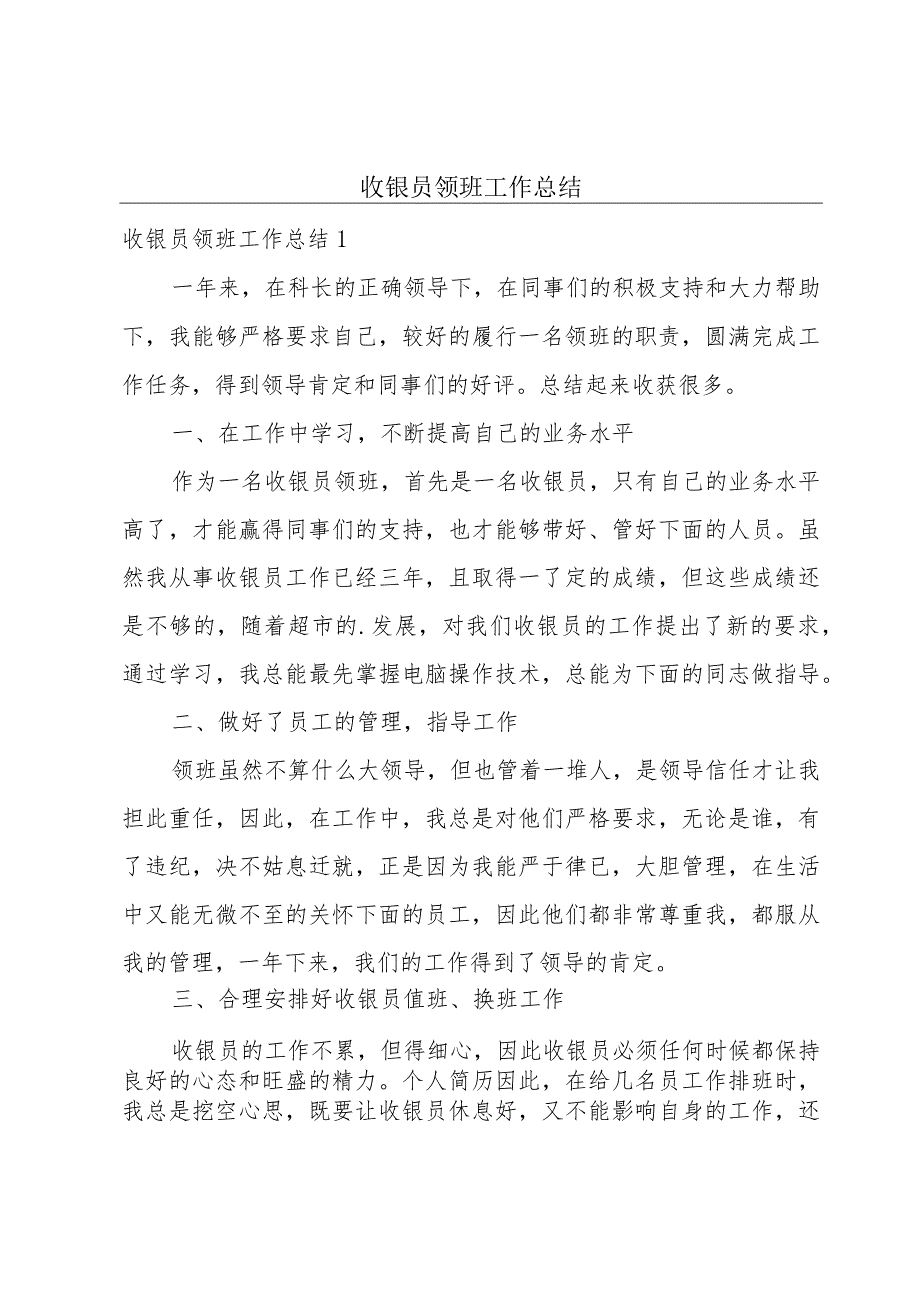 收银员领班工作总结
收银员领班工作总结1
一年来，在科长的正确领导下，在同事们的积极支持和大力帮助
下，我能够严格要求自己，较好的履行一名领班的职责，圆满完成工
作任务，得到领导肯定和同事们的好评。总结起来收获很多。
一、在工作中学习，不断提高自己的业务水平
作为一名收银员领班，首先是一名收银员，只有自己的业务水平
高了，才能赢得同事们的支持，也才能够带好、管好下面的人员。虽
然我从事收银员工作已经三年，且取得一了定的成绩，但这些成绩还
是不够的，随着超市的.发展，对我们收银员的工作提出了新的要求，
通过学习，我总能最先掌握电脑操作技术，总能为下面的同志做指导。
二、做好了员工的管理，指导工作
领班虽然不算什么大领导，但也管着一堆人，是领导信任才让我
担此重任，因此，在工作中，我总是对他们严格要求，无论是谁，有
了违纪，决不姑息迁就，正是因为我能严于律已，大胆管理，在生活
中又能无微不至的关怀下面的员工，因此他们都非常尊重我，都服从
我的管理，一年下来，我们的工作得到了领导的肯定。
三、合理安排好收银员值班、换班工作
收银员的工作不累，但得细心，因此收银员必须任何时候都保持
良好的心态和旺盛的精力。个人简历因此，在给几名员工作排班时，
我总是挖空心思，既要让收银员休息好，又不能影响自身的工作，还